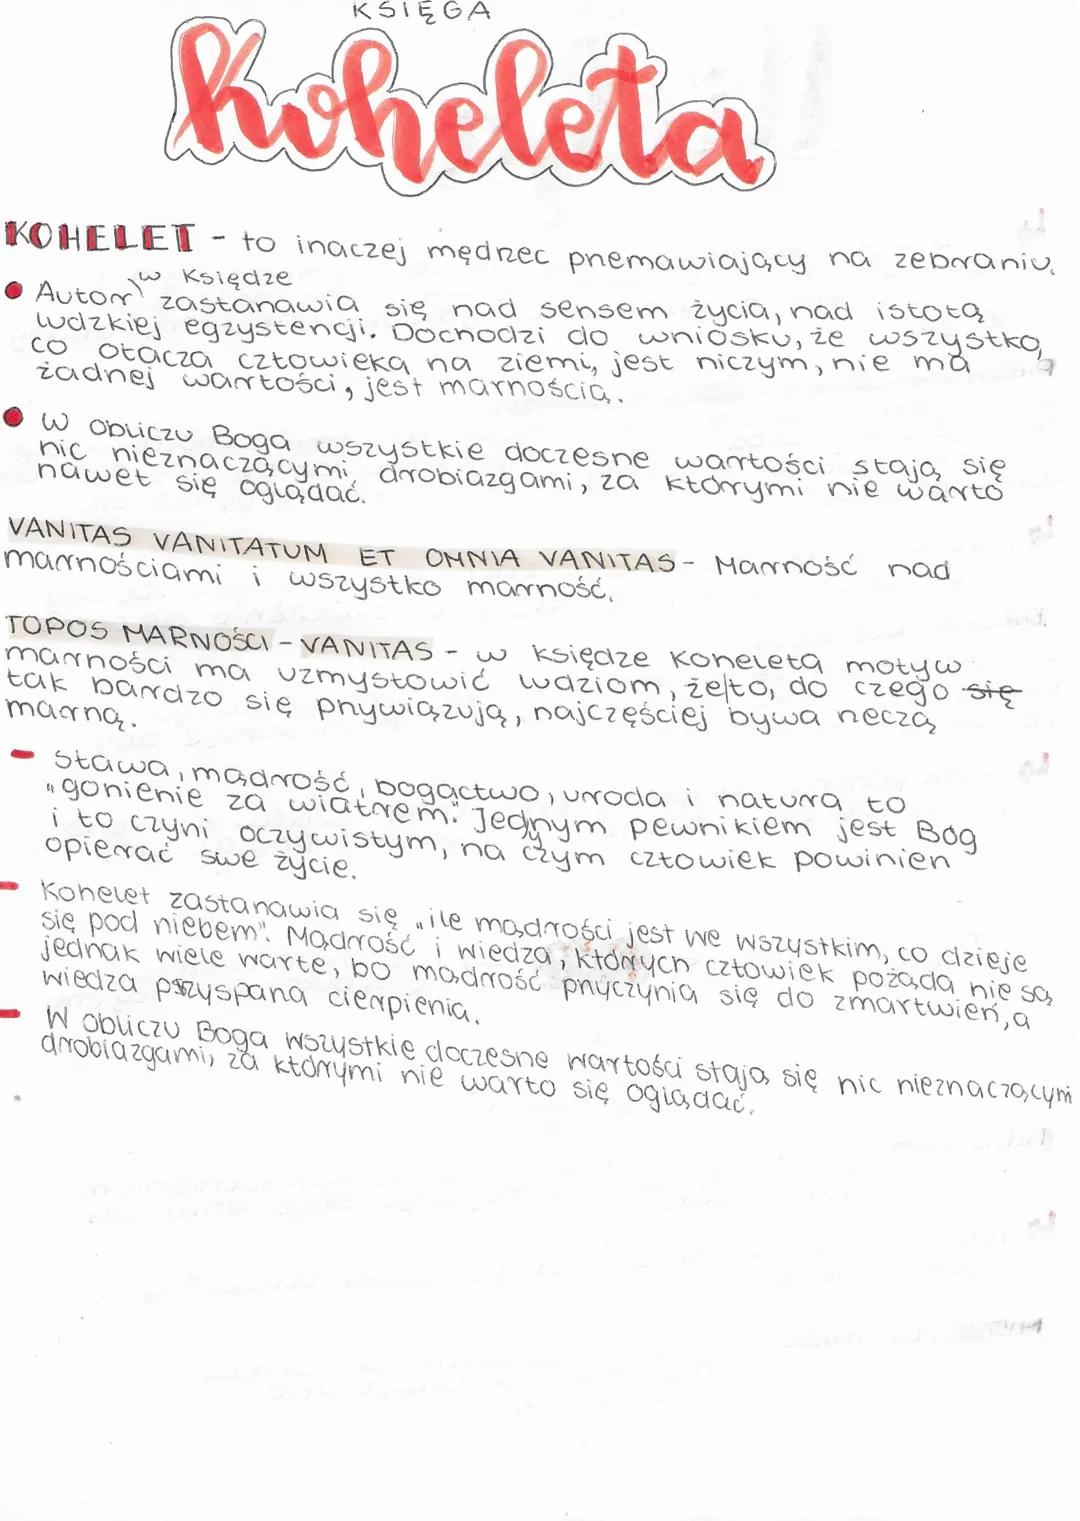 KSIĘGA
Koheleta
KOHELET - to inaczej mędrzec przemawiający na zebraniu.
w Księdze
Autor zastanawia się nad sensem życia, nad istotą
ludzkiej egzystencji. Dochodzi do wniosku, że wszystko,
co otacza człowieka na ziemi, jest niczym, nie ma
żadnej wartości, jest marnością.
W obliczu Boga wszystkie doczesne wartości stają się
nic nieznaczącymi drobiazgami, za którymi nie warto
nawet się oglądać.
VANITAS VANITATUM ET OMNIA VANITAS - Marność nad
marnościami i wszystko marność.
TOPOS MARNOŚCI - VANITAS - w księdze Koheleta motyw
marności ma uzmysłowić ludziom, że to, do czego się
tak bardzo się przywiązują, najczęściej bywa rzeczą
marną.
- sława, mądrość, bogactwo, uroda i natura to
"gonienie za wiatrem". Jednym pewnikiem jest Bóg
i to czyni oczywistym, na czym człowiek powinien
opierać swe życie.
- Kohelet zastanawia się "ile mądrości jest we wszystkim, co dzieje
się pod niebem". Mądrość i wiedza, których człowiek pożąda nie są
jednak wiele warte, bo mądrość przyczynia się do zmartwień, a
wiedza przyspana cierpienia.
- W obliczu Boga wszystkie doczesne wartości stają się nic nieznaczącymi
drobiazgami, za którymi nie warto się oglądać.